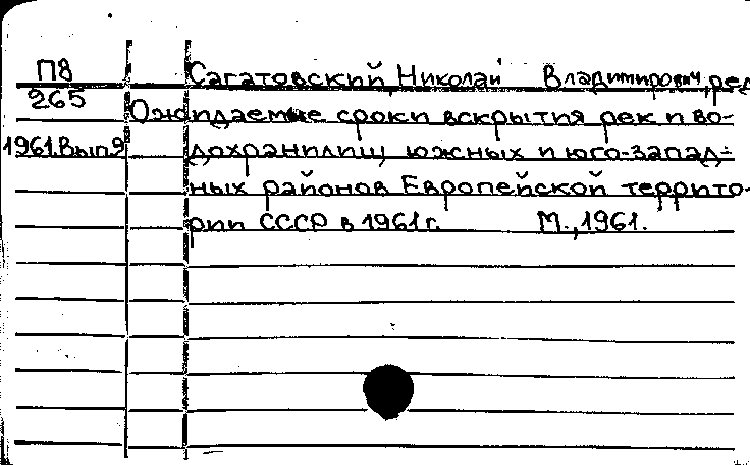 П8
265
1961.Вып.9
Сагатовский, Николай Владимирович, ред
Ожидаемые сроки вскрытия рек и во-
дохранилищ южных и юго-запад-
ных районов Европейской террито-
рии СССР в 1961 г. М., 1961.